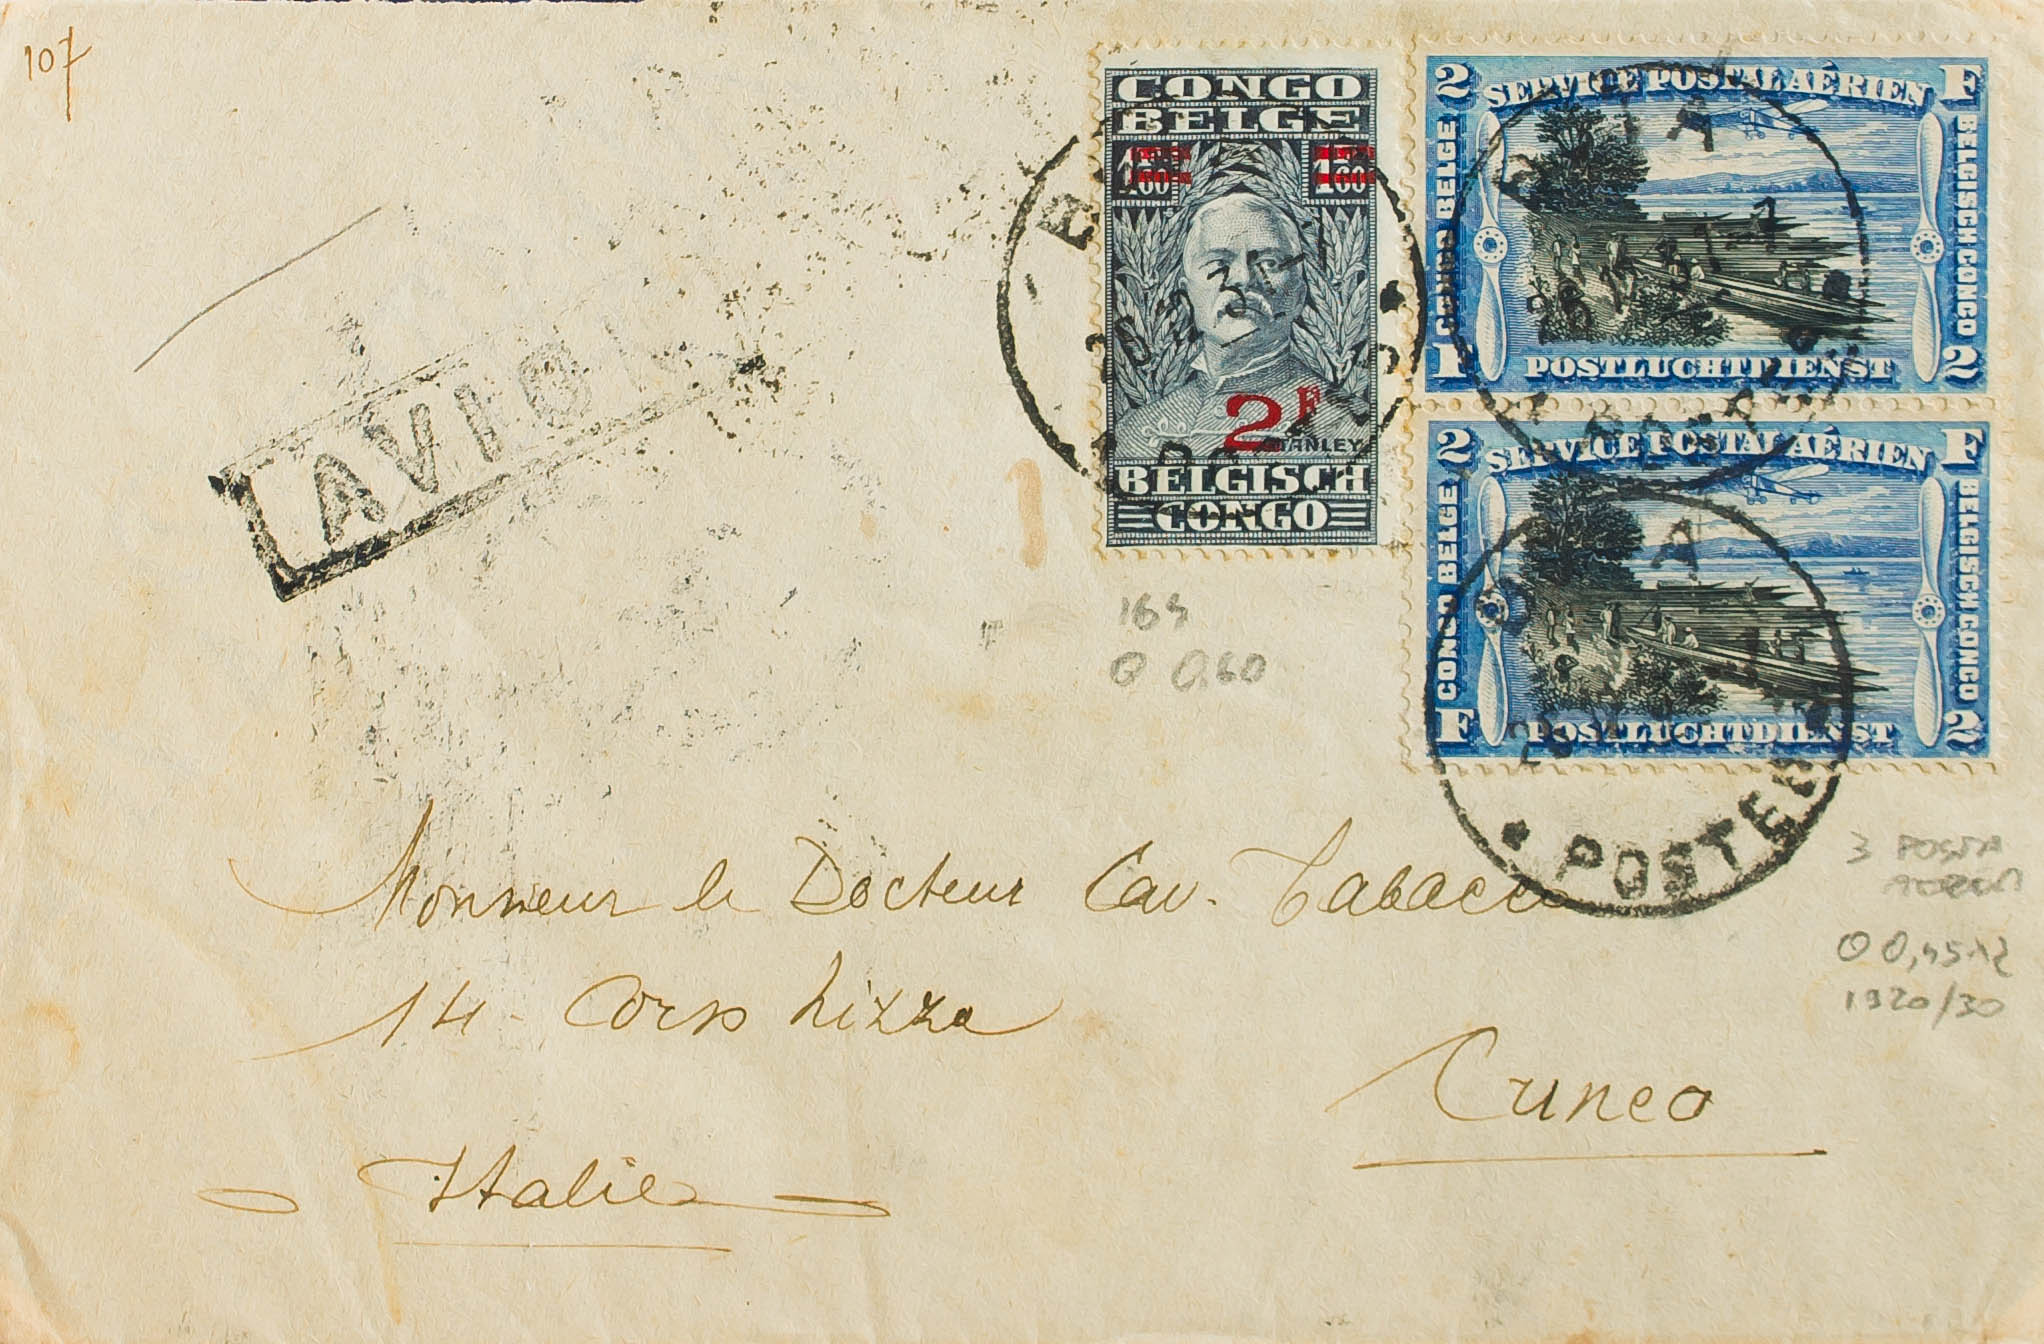 107
CONGO
BELGE
1.60 1.60
2F
STANLEY
BELGISCH
CONGO
2 F
SERVICE POSTAL AÉRIEN
CONGO BELGE
BELGISCH CONGO
F 2
POSTLUCHTDIENST
2 F
SERVICE POSTAL AÉRIEN
CONGO BELGE
BELGISCH CONGO
F 2
POSTLUCHTDIENST
AVION
POSTE
164
0 0.60
3 POSTA
AEREA
1920/30
Monsieur le Docteur Cav. Tabacco
14 - Corso Nizza
Cuneo
Italie